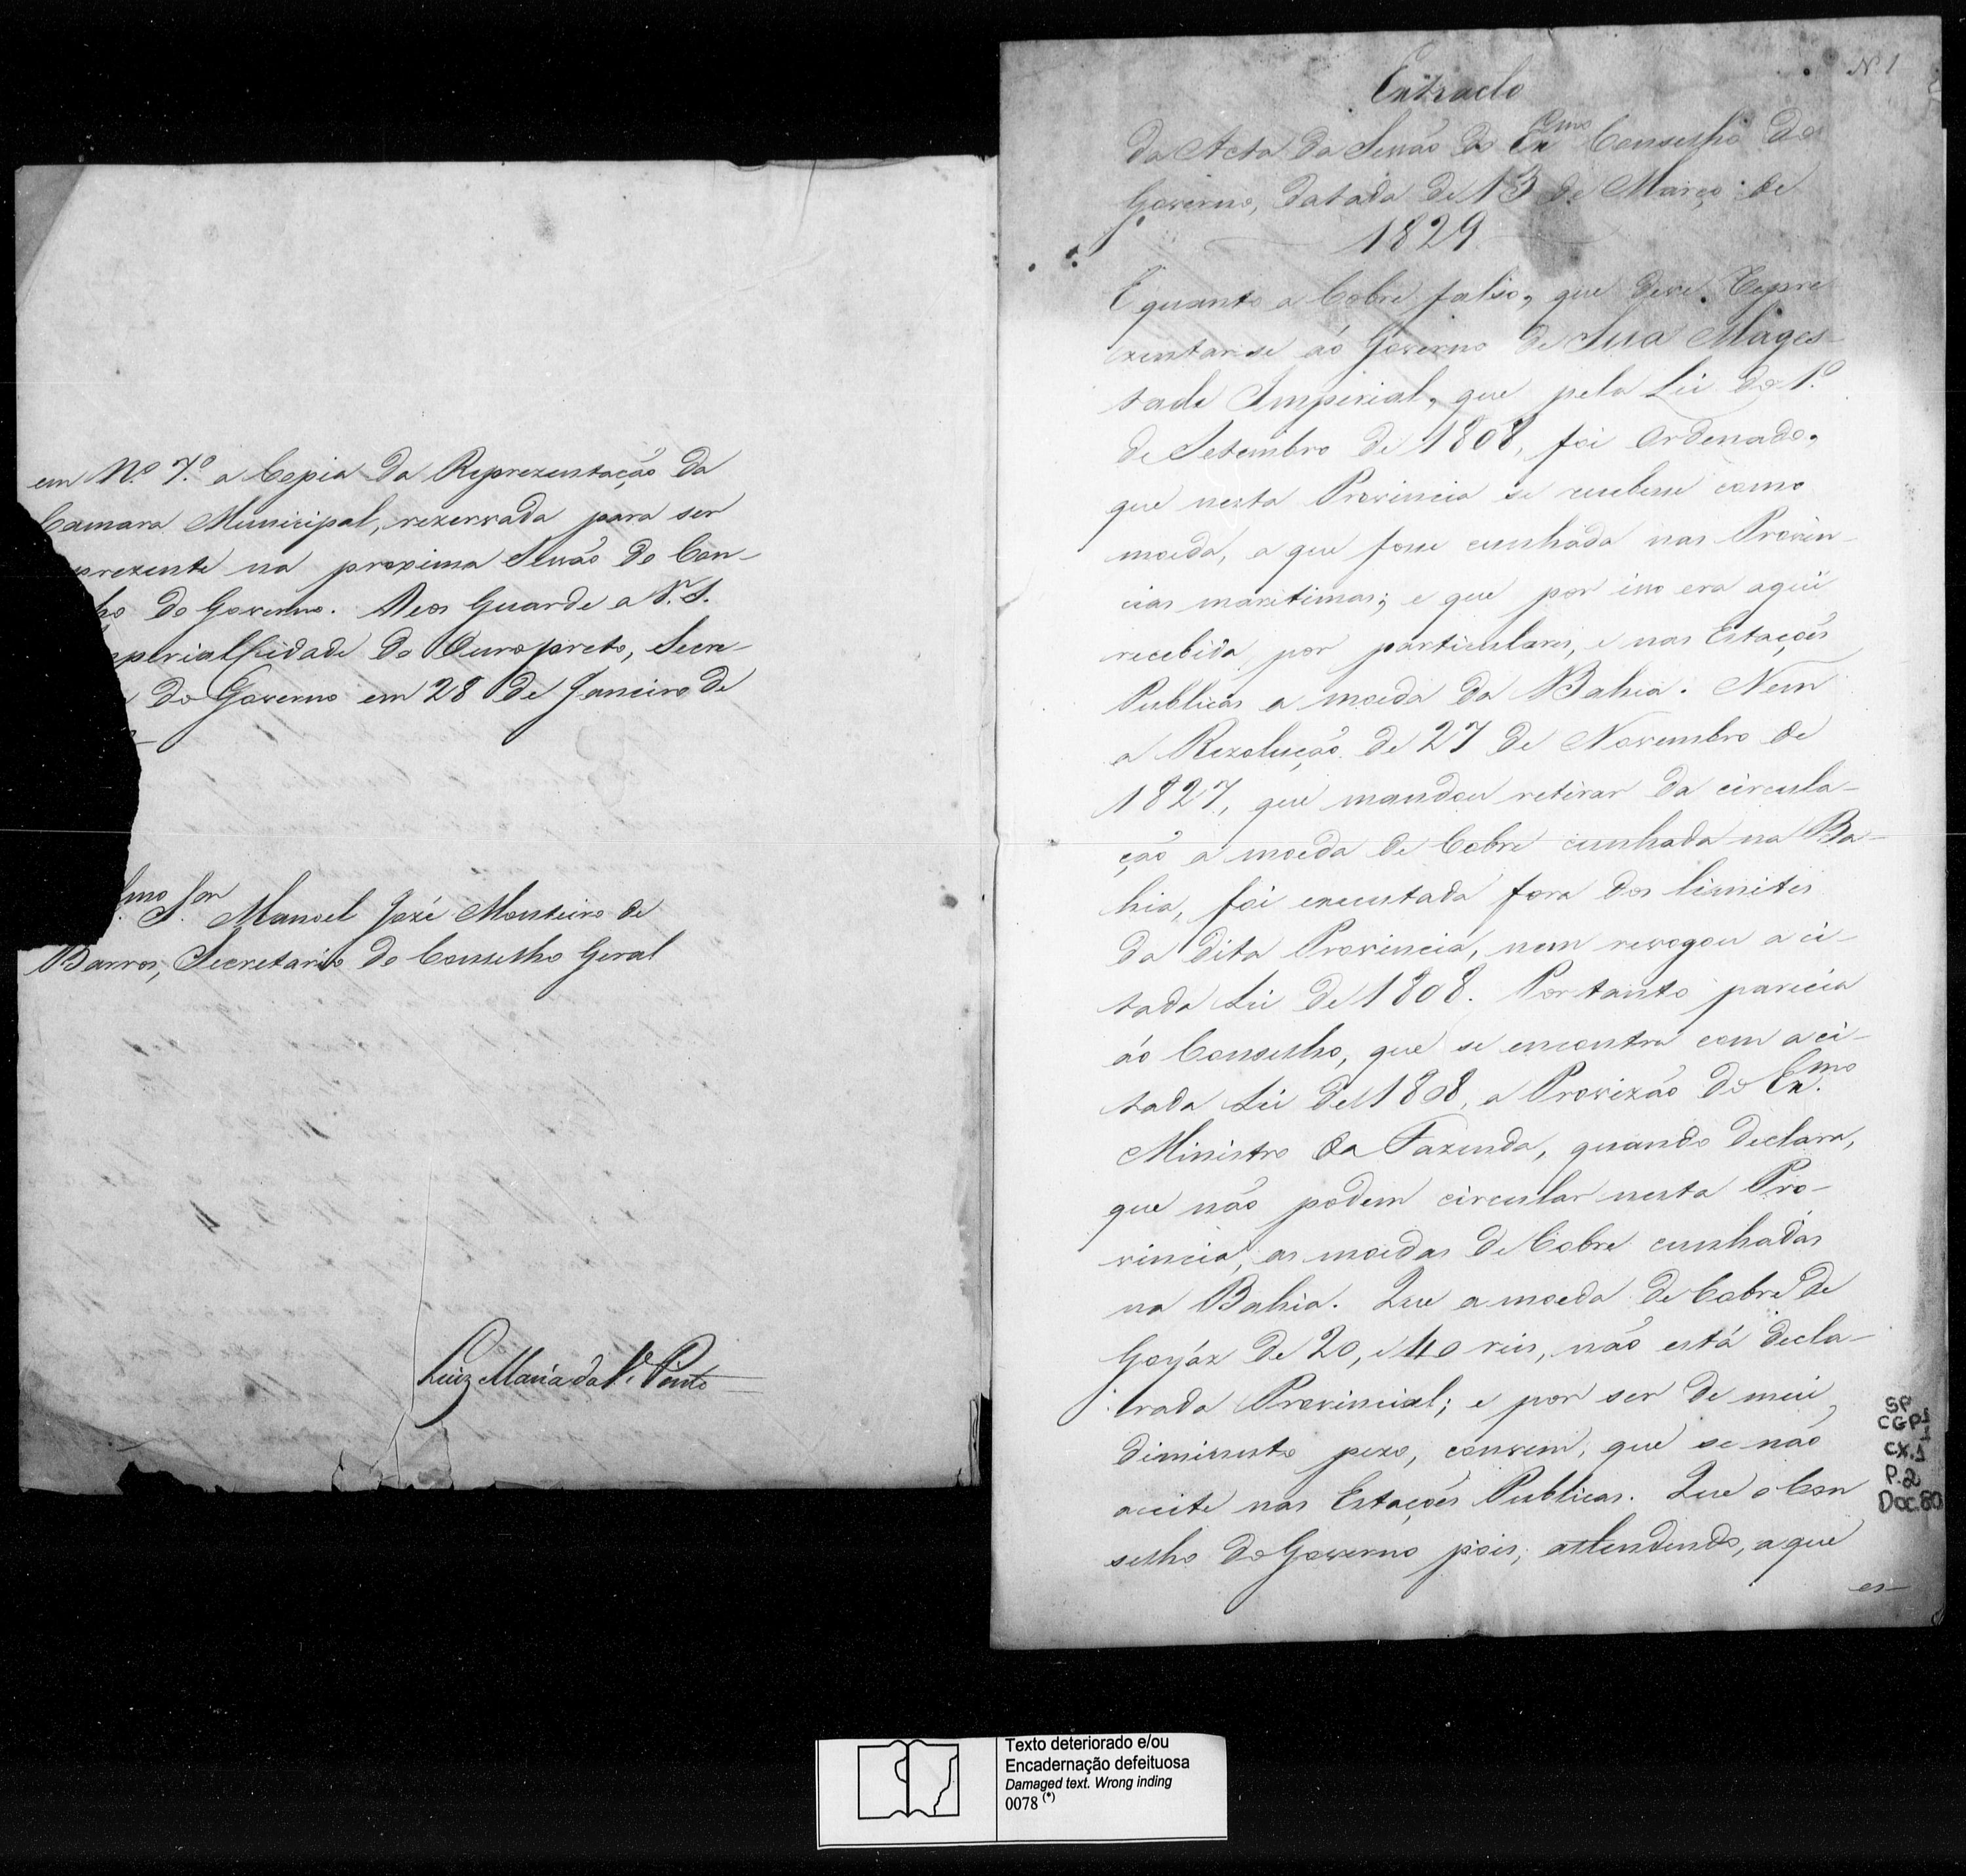 em N.º 7.º a Copia da Reprezentação da
Camara Municipal, rezervada para ser
prezente na proxima Sessão do Con-
ho do Governo. Deos Guarde a V. S.
perial Cidade do Ouro preto, Secre-
do Governo em 28 de Janeiro de
mo Sr. Manoel Jozé Monteiro de
Barros, Secretario do Conselho Geral
Luiz Maria da S.ª Pinto
N. 1
Extracto
da Acta da Sessão do Exmo Conselho do
Governo, datada de 13 de Março de
1829
E quanto a Cobre falso, que deve Repre
zentar-se áo Governo de Sua Mages-
tade Imperial, que pela Lei do 1.º
de Setembro de 1808, foi Ordenado,
que nesta Provincia se recebesse como
moeda, a que fosse cunhada nas Provin-
cias maritimas; e que por isso era aqui
recebida por particulares, e nas Estações
Publicas a moeda da Bahia. Nem
a Rezolução de 27 de Novembro de
1827, que mandou retirar da circula-
ção a moeda de Cobre cunhada na Ba-
hia, foi executada fora dos limites
da dita Provincia, nem revogou a ci-
tada Lei de 1808. Por tanto parecia
áo Conselho, que se encontra com a ci-
tada Lei de 1808, a Provizão do Ex.mo
Ministro da Fazenda, quando declara,
que não podem circular nesta Pro-
vincia, as moedas de Cobre cunhadas
na Bahia. Que a moeda de Cobre de
Goyáz de 20, e 40 reis, não está decla-
rada Provincial; e por ser de mui
diminuto pezo, convem, que se não
aceite nas Estações Publicas. Que o Con
selho do Governo pois, attendendo, a que
es-
SP
CGP 1
CX. 1
P. 2
Doc. 80
Texto deteriorado e/ou
Encadernação defeituosa
Damaged text. Wrong inding
0078 (*)